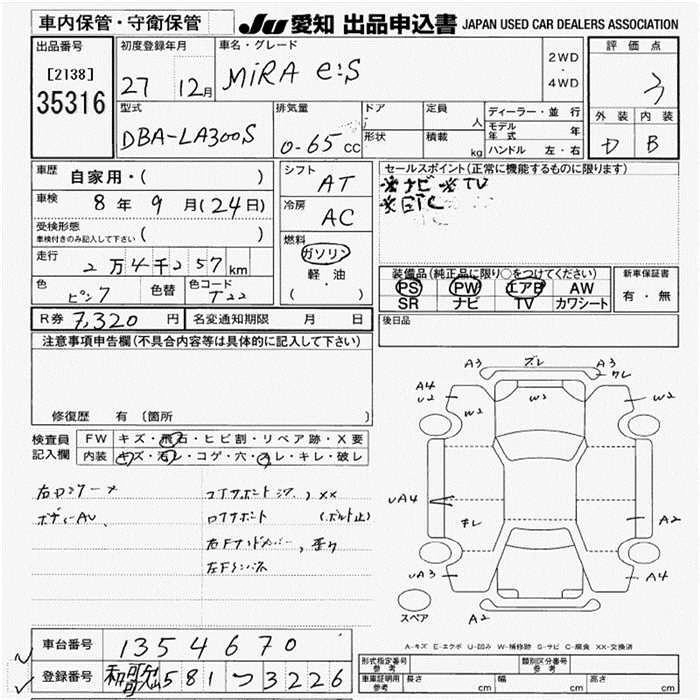 車内保管・守衛保管
JU 愛知 出品申込書 JAPAN USED CAR DEALERS ASSOCIATION
出品番号
[2138]
35316
初度登録年月
27 12月
車名・グレード
MiRA e:S
2WD
・
4WD
評価点
3
外装 内装
D B
型式
DBA-LA300S
排気量
0-65 cc
ドア
形状
定員 人
積載 kg
ディーラー・並行
モデル年式 年
ハンドル 左・右
車歴
自家用・( )
車検
8年 9月(24日)
受検形態
車検付きのみ記入して下さい ( )
走行
2万4千257km
色
ピンク
色替
色コード
T22
シフト
AT
冷房
AC
燃料
ガソリン
軽・油
( )
セールスポイント(正常に機能するものに限ります)
※ナビ ※TV
※ETC
装備品(純正品に限り○をつけてください)
PS PW エアB AW
SR ナビ TV カワシート
新車保証書
有・無
R券 7,320円
名変通知期限 月 日
後日品
注意事項申告欄(不具合内容等は具体的に記入して下さい)
修復歴 有 〔箇所 〕
検査員
記入欄
FW キズ・飛石・ヒビ割・リペア跡・X要
内装 キズ・汚レ・コゲ・穴・スレ・キレ・破レ
コアサポート XX
ロアサポート (ボルト止)
A3 ズレ A3
ワレ
A4
U2
W2
W2
W2
W2
UA4
A2
UA3
A4
A2
スペア
A-キズ E-エクボ U-凹み W-補修跡 S-サビ C-腐食 XX-交換済
車台番号
1354670
登録番号
和歌山581つ3226
形式指定番号
参考
類別区分番号
参考
車庫証明用
参考
長さ cm
幅 cm
高さ cm